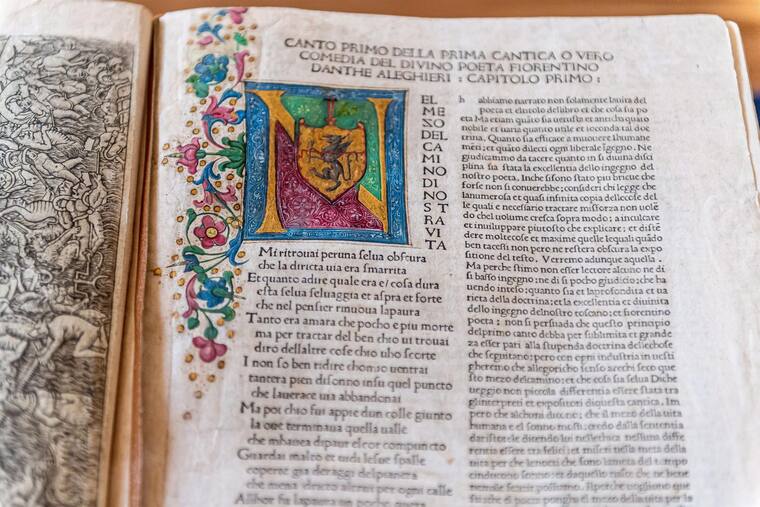 CANTO PRIMO DELLA PRIMA CANTICA O VERO
COMEDIA DEL DIVINO POETA FIORENTINO
DANTHE ALEGHIERI : CAPITOLO PRIMO :
N
EL
ME
ZO
DEL
CA
MI
NO
DI
NO
ST
RA
VI
TA
Mi ritrouai per una ſelua obſcura
che la diricta uia era ſmarrita
Et quanto adire quale era e/ coſa dura
eſta ſelua ſeluaggia et aſpra et forte
che nel penſier rinuoua la paura
Tanto era amara che pocho e piu morte
ma per tractar del ben chio ui trouai
diro dellaltre coſe chio uho ſcorte
I non ſo ben ridire chomio uentrai
tantera pien diſonno inſu quel puncto
che la uerace uia abbandonai
Ma poi chio fui appie dun colle giunto
la oue terminaua quella ualle
che mhauea dipaur el cor compuncto
Guardai in alto et uidi le ſue ſpalle
coperte gia deraggi del pianeta
che mena ricto altrui per ogni calle
Allhor fu la paura un poco
h abbiamo narrato non ſolamente lauita del
poeta et eltitolo dellibro et che coſa ſia po
eta Ma etiam quāto ſia uetuſta et anticha quāto
nobile et uaria quanto utile et ioconda tal doc
trina. Quanto ſia efficace a muouere lhumane
mēti; et quāto dilecti ogni liberale īgegno. Ne
giudicammo da tacere quanto in ſi diuina diſci
plina ſia ſtata la excellentia dello ingegno del
noſtro poeta. Inche ſiſono ſtato piu brieue che
forſe non ſi conuerebbe; conſideri chi legge che
lanumeroſa et quaſi infinita copia dellecoſe del
le quali e neceſſario tractare miſforza non uolē
do chel uolume creſca ſopra modo; a inculcare
et inuiluppare piutoſto che explicare; et diſtē
dere molte coſe et maxime quelle lequali quādo
ben taceſſi non pero ne reſtera obſcura la expo
ſitione del teſto. Verremo adunque aquella.
Ma perche ſtimo non eſſer lectore alcuno ne di
ſi baſſo ingegno ne di ſi pocho giudicio; che ha
uendo inteſo quanto ſia et laprofondita et ua
rieta della doctrina; et la excellentia et diuinita
dello ingegno delnoſtro toſcano; et fiorentino
poeta; non ſi perſuada che queſto principio
del primo canto debba per ſublimita et grande
za eſſer pari alla ſtupenda doctrina dellecoſe
che ſeguitano; pero con ogni induſtria in ueſti
gheremo che allegoricho ſenſo arechi ſeco que
ſto mezo delcamino; et che coſa ſia ſelua Diche
ueggio non piccola differentia eſſere ſtata tra
glinterpreti et expoſitori diqueſta cantica. Im
pero che alchuni dicono; che il mezo della uita
humana e el ſonno moſſi; credo dalla ſententia
dariſtotele dicendo lui nellethica neſſuna diffe
rentia eſſere tra felici; et miſeri nella meta della
uita per che lenocti che ſono lameta del tempo